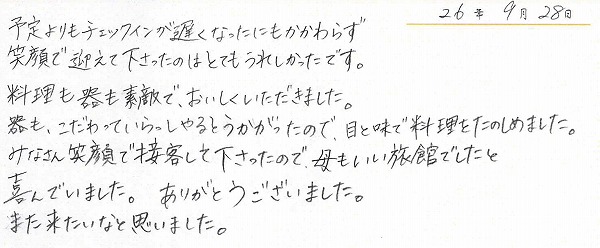 26年 9月 28日
予定よりもチェックインが遅くなったにもかかわらず
笑顔で迎えて下さったのはとてもうれしかったです。
料理も器も素敵で、おいしくいただきました。
器も、こだわっていらっしゃるとうかがったので、目と味で料理をたのしめました。
みなさん笑顔で接客して下さったので、母もいい旅館でしたと
喜んでいました。 ありがとうございました。
また来たいなと思いました。